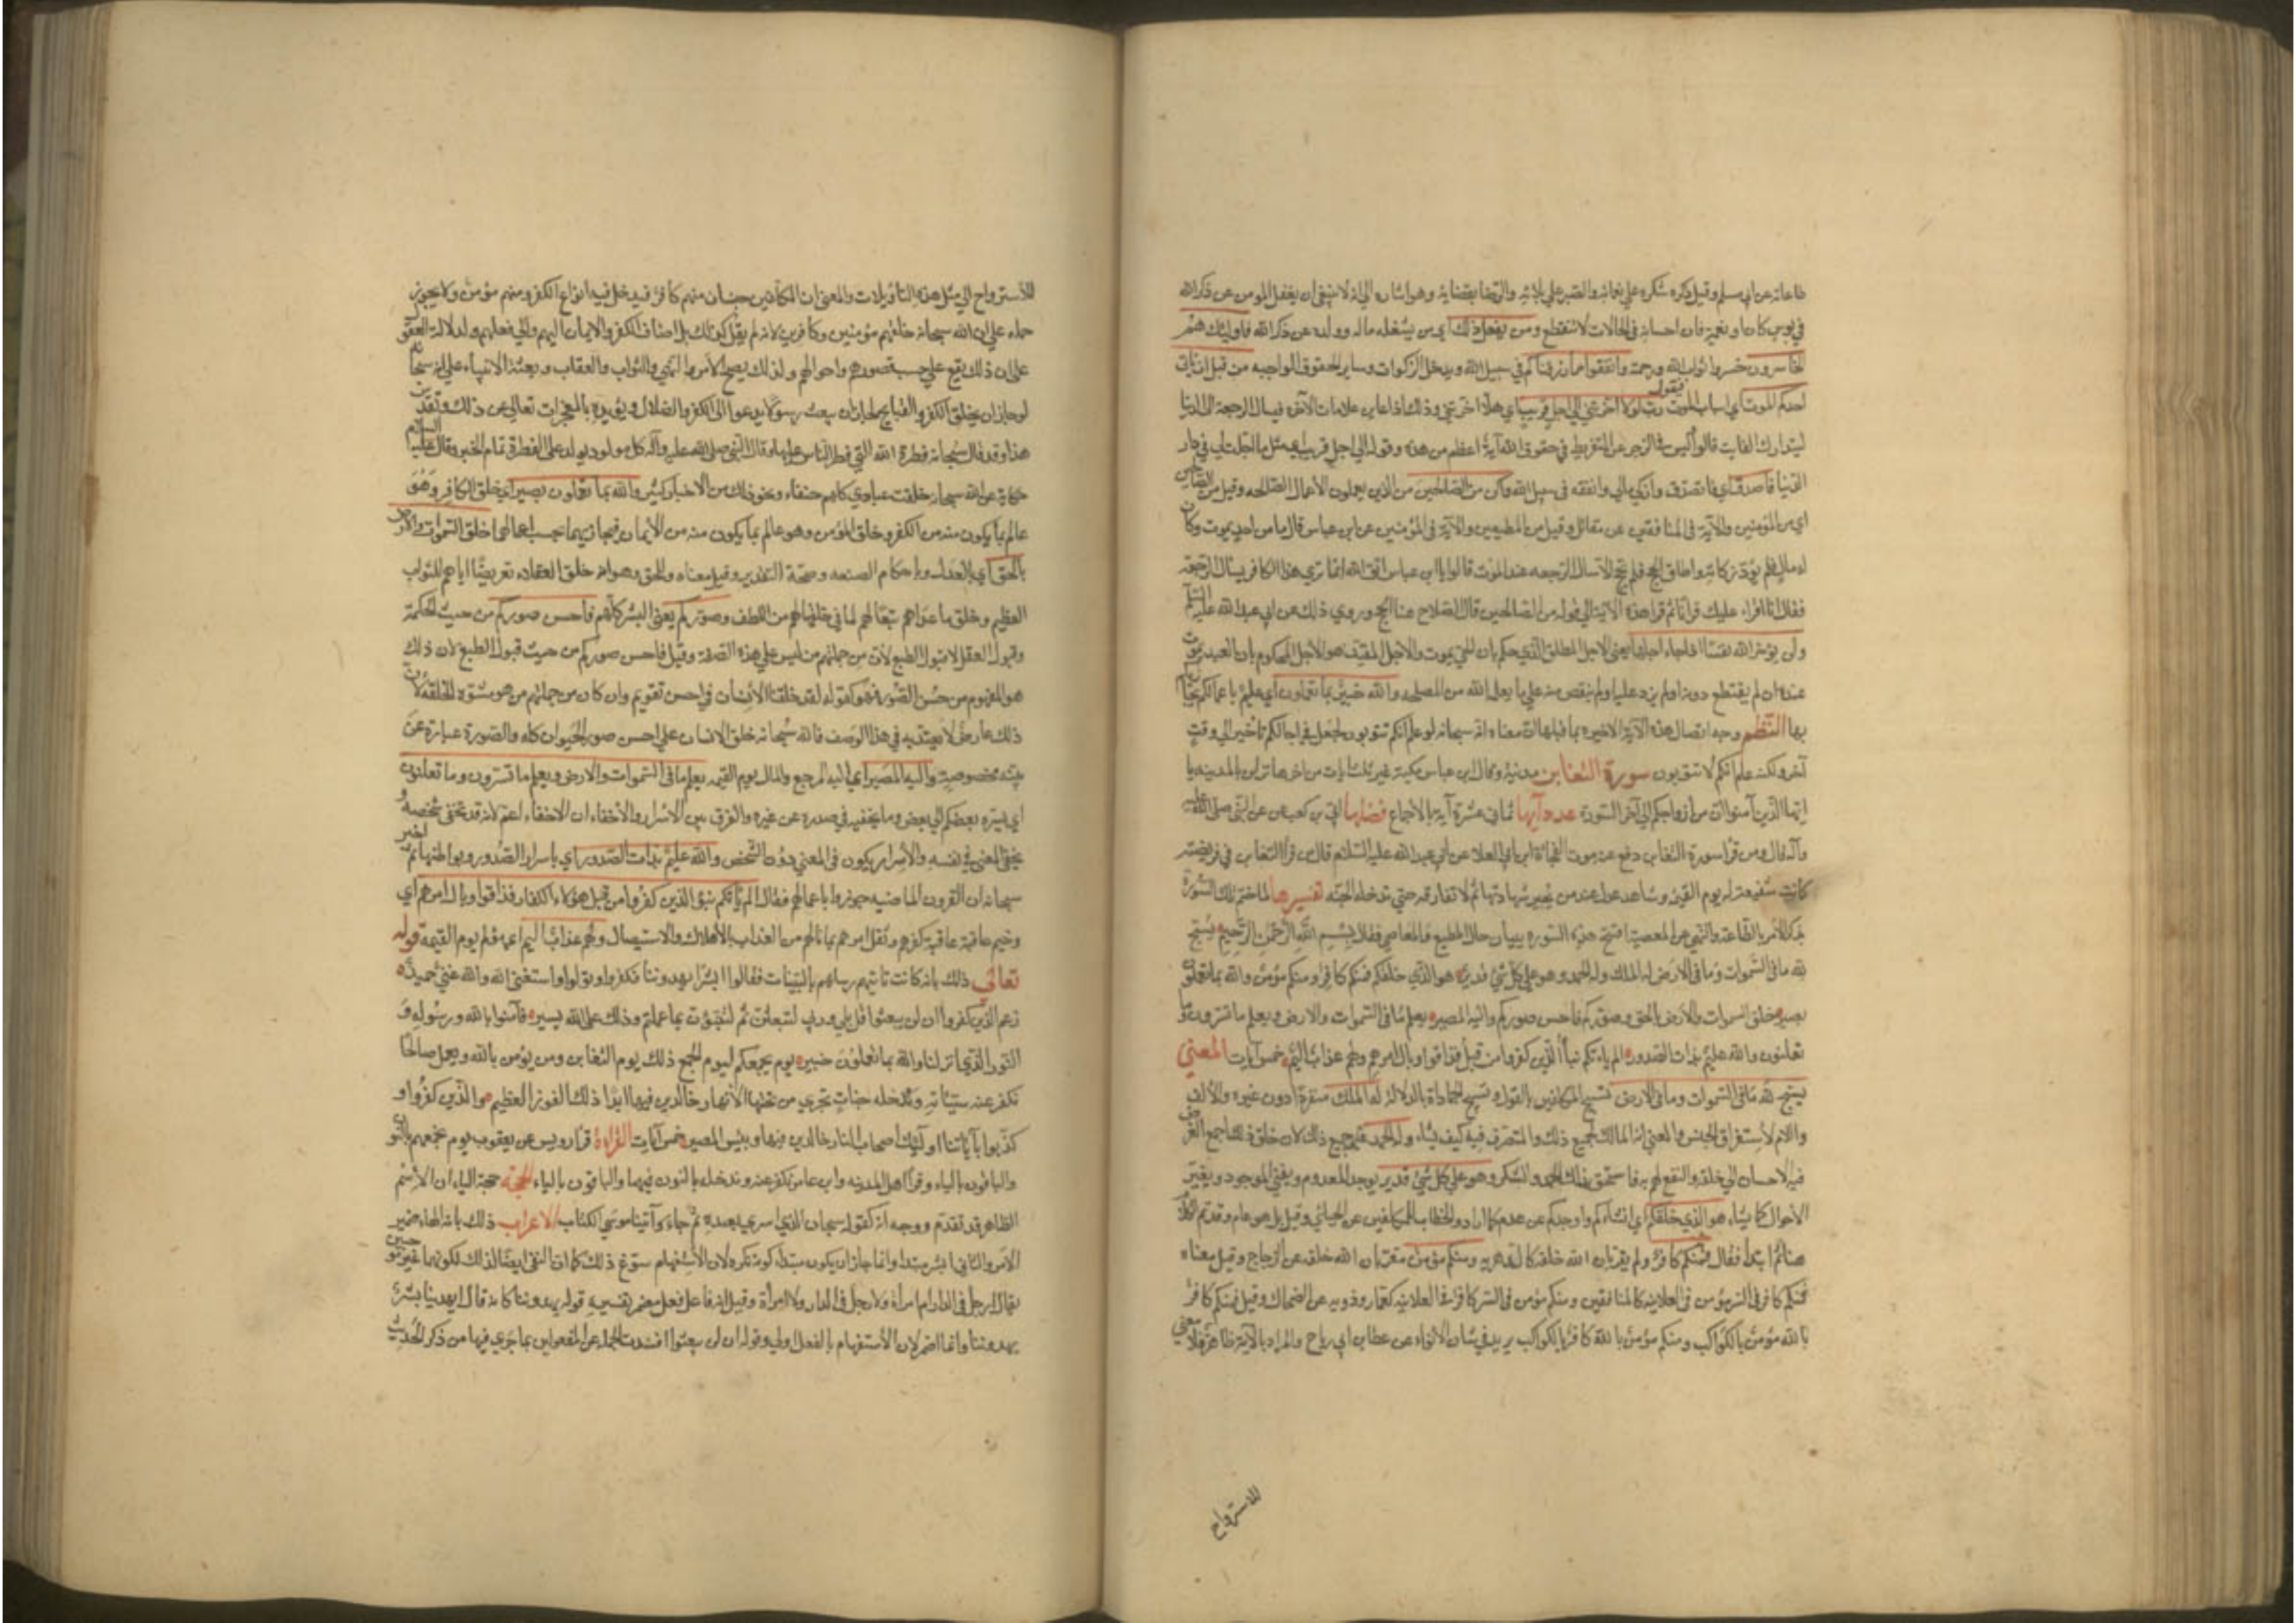 طاعاته عن ابي مسلم وقيل ذكره شكره علي نعمائه والصبر علي بلائه والرضا بقضايه وهو اشاره الي انه لا ينبغي ان يغفل المومن عن ذكر الله
في بوس كان او نعمة فان احسانه في الحالات لا ينقطع ومن يفعل ذلك اي من يشغله ماله وولده عن ذكر الله فاوليك هم
الخاسرون خسروا ثواب الله ورحمته وانفقوا مما رزقناكم في سبيل الله ويدخل الزكوات وساير الحقوق الواجبه من قبل ان ياتي
احدكم الموت اي اسباب الموت فيقول رب لولا اخرتني الي اجل قريب اي هلا اخرتني وذلك اذا عاين علامات الآخرة فيسال الرجعة الى الدنيا
ليتدارك الفايت قالوا ليس في الزجر عن التفريط في حقوق الله آية اعظم من هذه وقوله الي اجل قريب اي مثل ما اجلت لي في دار
الدنيا فاصدق اي فاتصدق وازكي مالي وانفقه في سبيل الله واكن من الصالحين من الذين يعملون الأعمال الصالحه وقيل من الصالحين
اي من المؤمنين والآية في المنافقين عن مقاتل وقيل من المطيعين والآية في المؤمنين عن ابن عباس قال ما من احد يموت وكان
له مال فلم يؤد زكاته واطاق الحج فلم يحج الا سال الرجعه عند الموت قالوا يا ابن عباس اتق الله انما نري هذا الكافر يسال الرجعة
فقال انا اقراء عليك قرآنا ثم قرا هذه الآية الي قوله من الصالحين قال الصلاح هنا الحج وروي ذلك عن ابي عبد الله عليه السلم
ولن يؤخر الله نفسا اذا جاء اجلها يعني الاجل المطلق الذي حكم بان الحي يموت والاجل المقيد هو الاجل المحكوم بان العبد يموت
عنده ان لم يقتطع دونه او لم يزد عليه او لم ينقص منه علي ما يعلم الله من المصلحه والله خبير بما تعملون اي عليم باعمالكم يجازيكم
بها النظم وجه اتصال هذه الآية الاخيره بما قبلها ان معناه انه سبحانه لو علم انكم تتوبون لجعل في اجالكم تاخير الي وقت
آخر ولكنه علم انكم لا تتوبون سورة التغابن مدنية وقال ابن عباس مكية غير ثلث آيات من آخرها نزلن بالمدينه يا
ايها الذين آمنوا ان من ازواجكم الي آخر السورة عدد آيها ثماني عشرة آية بالاجماع فضلها ابي بن كعب عن النبي صلى الله عليه
وآله قال ومن قرا سورة التغابن دفع عنه موت الفجاة ابن ابي العلا عن ابي عبد الله عليه السلام قال من قرا التغابن في فريضته
كانت شفيعة له يوم القيمة وشاهد عدل عند من يجيز شهادتها ثم لا تفارقه حتي تدخله الجنه تفسيرها لما ختم تلك السورة
بذكر الأمر بالطاعة والنهي عن المعصية افتتح هذه السوره ببيان حال المطيع والعاصي فقال بسم الله الرحمن الرحيم يسبح
لله ما في السموات وما في الارض له الملك وله الحمد وهو علي كل شئ قدير هو الذي خلقكم فمنكم كافر ومنكم مؤمن والله بما تعملون
بصير خلق السموات والأرض بالحق وصوركم فاحسن صوركم واليه المصير يعلم ما في السموات والارض ويعلم ما تسرون وما
تعلنون والله عليم بذات الصدور الم ياتكم نبا الذين كفروا من قبل فذاقوا وبال امرهم ولهم عذاب اليم خمس آيات المعني
يسبح لله ما في السموات وما في الارض تسبيح المكلفين بالقول وتسبيح الجمادات بالدلاله له الملك منفردا دون غيره والألف
واللام لاستغراق الجنس والمعني انه المالك لجميع ذلك والمتصرف فيه كيف يشاء وله الحمد علي جميع ذلك لان خلق ذلك اجمع الغرض
فيه الاحسان الي خلقه والنفع لهم به فاستحق بذلك الحمد والشكر وهو علي كل شئ قدير يوجد المعدوم ويفني الموجود ويغير
الأحوال كما يشاء هو الذي خلقكم اي انشاكم واوجدكم عن عدم كما اراد والخطاب للمكلفين عن الجبائي وقيل بل هو عام وقد تم الكلام
هنا ثم ابتدا فقال فمنكم كافر ولم يقر بان الله خلقه كالدهريه ومنكم مؤمن مقر بان الله خلقه عن الزجاج وقيل معناه
فمنكم كافر في السر مؤمن في العلانيه كالمنافقين ومنكم مؤمن في السر كافر في العلانيه كعمار وذويه عن الضحاك وقيل فمنكم كافر
بالله مؤمن بالكواكب ومنكم مؤمن بالله كافر بالكواكب يريد في شان الأنواء عن عطا بن ابي رباح والمراد بالآية ظاهر فلا معني
للاسترواح
للاسترواح الي مثل هذه التاويلات والمعني ان المكلفين جنسان منهم كافر فيدخل فيه انواع الكفر ومنهم مؤمن ولا يجوز
حمله علي ان الله سبحانه خلقهم مؤمنين وكافرين لانه لم يقل كذلك بل اضاف الكفر والايمان اليهم والي فعلهم ولدلالة العقول
علي ان ذلك يقع علي حسب قصودهم واحوالهم ولذلك يصح الأمر والنهي والثواب والعقاب وبعثة الانبياء علي انه سبحانه
لو جاز ان يخلق الكفر والقبايح لجاز ان يبعث رسولا يدعو الي الكفر والضلال ويؤيده بالمعجزات تعالي عن ذلك وتقدس
هذا وقد قال سبحانه فطرة الله التي فطر الناس عليها وقال النبي صلى الله عليه وآله كل مولود يولد علي الفطرة تمام الخبر وقال عليه السلام
حكاية عن الله سبحانه خلقت عبادي كلهم حنفاء ونحو ذلك من الاخبار كثير والله بما تعملون بصير اي خلق الكافر وهو
عالم بما يكون منه من الكفر وخلق المؤمن وهو عالم بما يكون منه من الايمان فيجازيهما بحسب اعمالهما خلق السموات والأرض
بالحق اي بالعدل وباحكام الصنعه وصحة التقدير وقيل معناه وللحق وهو انه خلق العقلاء تعريضا اياهم للثواب
العظيم وخلق ما عداهم تبعا لهم لما في خلقها لهم من اللطف وصوركم يعني البشر كلهم فاحسن صوركم من حيث الحكمة
وقبول العقل لا قبول الطبع لأن من جملتهم من ليس علي هذه الصفة وقيل فاحسن صوركم من حيث قبول الطبع لان ذلك
هو المفهوم من حسن الصور فهو كقوله لقد خلقنا الأنسان في احسن تقويم وان كان من جملتهم من هو مشوه الخلقه لان
ذلك عارض لا يعتد به في هذا الوصف فالله سبحانه خلق الانسان علي احسن صور الحيوان كله والصورة عبارة عن
بنية مخصوصة واليه المصير اي اليه المرجع والمال يوم القيمه يعلم ما في السموات والارض ويعلم ما تسرون وما تعلنون
اي ما يسره بعضكم الي بعض وما يخفيه في صدره عن غيره والفرق بين الاسرار والأخفاء ان الاخفاء اعم لانه قد يخفي شخصه و
يخفي المعني في نفسه والأسرار يكون في المعني دون الشخص والله عليم بذات الصدور اي باسرار الصدور وبواطنها ثم اخبر
سبحانه ان القرون الماضيه جوزوا باعمالهم فقال الم ياتكم نبؤ الذين كفروا من قبل هؤلاء الكفار فذاقوا وبال امرهم اي
وخيم عاقبة كفرهم وثقل امرهم بما نالهم من العذاب بالأهلاك والاستيصال ولهم عذاب اليم اي مؤلم يوم القيمة قوله
تعالي ذلك بانه كانت تاتيهم رسلهم بالبينات فقالوا ابشر يهدوننا فكفروا وتولوا واستغني الله والله غني حميد
زعم الذين كفروا ان لن يبعثوا قل بلي وربي لتبعثن ثم لتنبؤن بما عملتم وذلك علي الله يسير فآمنوا بالله ورسوله و
النور الذي انزلنا والله بما تعملون خبير يوم يجمعكم ليوم الجمع ذلك يوم التغابن ومن يؤمن بالله ويعمل صالحا
نكفر عنه سيئاته وندخله جنات تجري من تحتها الأنهار خالدين فيها ابدا ذلك الفوز العظيم والذين كفروا و
كذبوا بآياتنا اوليك اصحاب النار خالدين فيها وبئس المصير خمس آيات القراءة قرا رويس عن يعقوب يوم نجمعهم بالنون
والباقون بالياء وقرا اهل المدينه وابن عامر نكفر عنه وندخله بالنون فيهما والباقون بالياء الحجة حجة الياء ان الأسم
الظاهر قد تقدم ووجه النون كقوله سبحان الذي اسري بعبده ثم جاء وآتينا موسي الكتاب الاعراب ذلك بانه الهاء ضمير
الأمر والشأن ابشر مبتدا وانما جاز ان يكون مبتدا لكونه نكره لان الأستفهام سوغ ذلك كما ان النفي ايضا كذلك لكونهما غير موجبين
يقال ارجل في الدار ام امراة ولا رجل في الدار ولا امراة وقيل انه فاعل فعل مضمر تفسيره قوله يهدوننا كانه قال ايهدينا بشر
يهدوننا وانما اضمر لان الأستفهام بالفعل اولي وقوله ان لن يبعثوا افسدت الجملة عن المفعولين بما جري فيها من ذكر الحديث